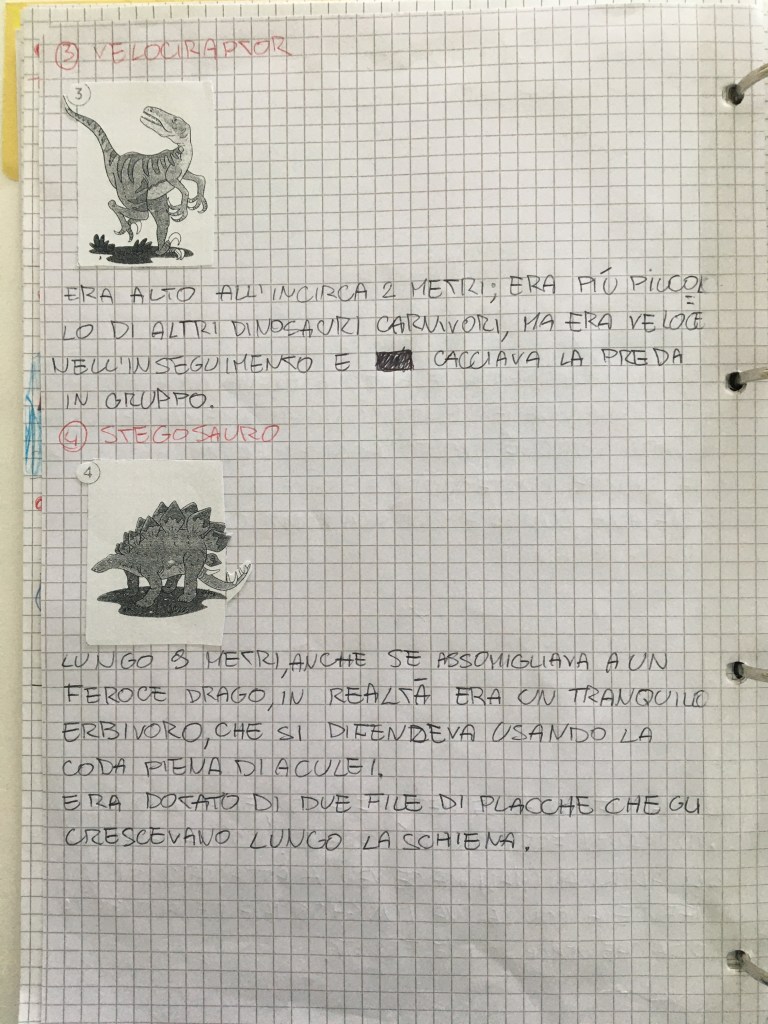 ③ VELOCIRAPTOR
3
ERA ALTO ALL'INCIRCA 2 METRI; ERA PIÚ PICCO=
LO DI ALTRI DINOSAURI CARNIVORI, MA ERA VELOCE
NELL'INSEGUIMENTO E CACCIAVA LA PREDA
IN GRUPPO.
④ STEGOSAURO
4
LUNGO 9 METRI, ANCHE SE ASSOMIGLIAVA A UN
FEROCE DRAGO, IN REALTÀ ERA UN TRANQUILO
ERBIVORO, CHE SI DIFENDEVA USANDO LA
CODA PIENA DI ACULEI.
ERA DOTATO DI DUE FILE DI PLACCHE CHE GLI
CRESCEVANO LUNGO LA SCHIENA.